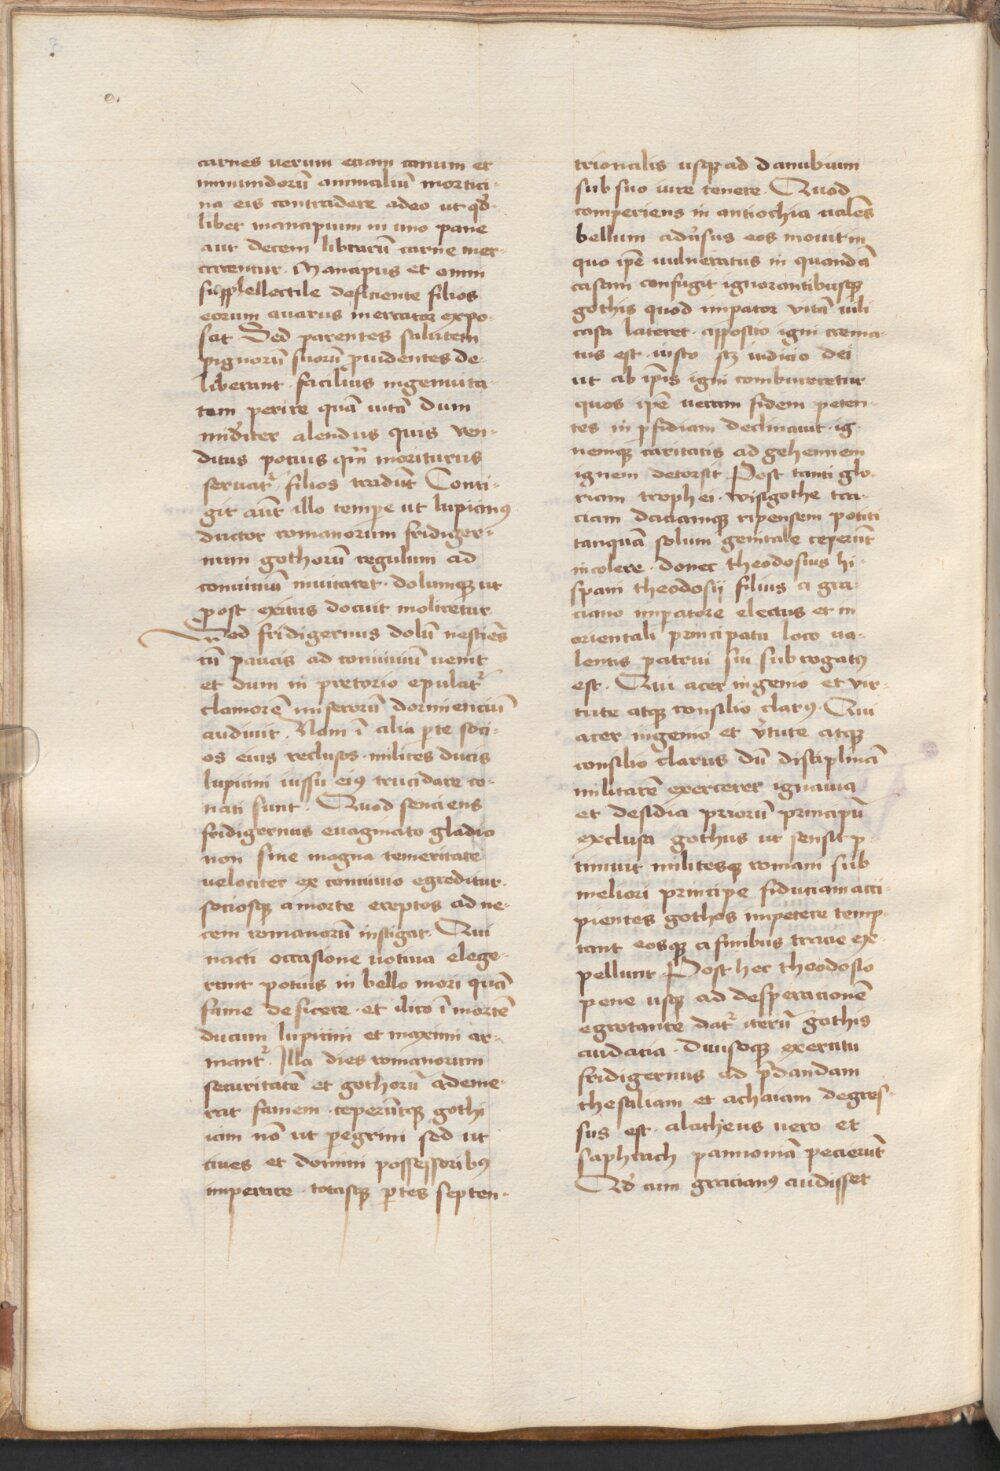 carnes verum etiam canum et
inmundorū animaliū mortici-
na eis contradere adeo ut qđ-
libet mancipium in uno pane
aut decem librarū carne mer-
carentur. Mancipiis et omni
supplellectile deficiente filios
eorum avarus mercator expo-
scit Sed parentes salutem
pignorū suorū pvidentes de-
liberant facilius ingenuita-
tem perire quā vitā dum
miđicter alendus quis ven-
ditus potius qm̄ moriturus
servat᷑ filios tradūt Conti-
git aūt illo tempe ut lupicinꝰ
ductor romanorum fridiger-
num gothorū regulum ad
conviviū invitaret. dolumqꝫ ut
post exitus docuit moliretur
Sed fridigernus dolū nesciēs
cū paucis ad conviviū venit
et dum in pretorio epulat᷑
clamorē miserorū dormienciū
audivit. Nam ī alia pte soci-
os eius reclusos milites ducis
lupicini iussu eiꝰ trucidare co-
nati sunt. Quod senciens
fridigernus evaginato gladio
non sine magna temeritate
velociter ex convivio egreditur.
sociosqꝫ a morte ereptos ad ne-
cem romanorū instigat. Qui
nacti occasione votiva elege-
runt potius in bello mori quā
fame deficere. et ilico ī mortē
ducum lupicini et maximi ar-
mant᷑. Illa dies romanorum
securitatē et gothorū ademe-
rat famem. ceperūtqꝫ gothi
iam nō ut pegrini sed ut
cives et domini possessoribꝰ
imperare. totasqꝫ ptes septen-
trionalis usqꝫ ad danubium
sub suo iure tenere. Quod
comperiens in antiochia valēs
bellum adūsus eos movit in
quo ipē vulneratus in quandā
casam confugit ignorantibusqꝫ
gothis quod impator vitā vili
casa lateret. apposito igni crema-
tus est. iusto sꝫ iudicio dei
ut ab ipīs igni combureretur
quos ipē veram fidem peten-
tes in pfidiam declinavit. ig-
nemqꝫ caritatis ad gehennem
ignem detorsit Post tanti glo-
riam trophei. wisigothe tra-
ciam daciamqꝫ ripensem potiti
tanquā solum genitale ceperūt
incolere. donec theodosius hi-
spani theodosij filius a gra-
ciano impatore electus et in
orientali principatu loco va-
lentis patrui sui subrogatꝰ
est. Qui acer ingenio et vir-
tute atqꝫ consilio clarꝰ. Qui
acer ingenio et v̄tute atqꝫ
consilio clarus dū disciplinā
militarē exerceret ignavia
et desidia priorū principū
exclusa gothus ut sensit p-
timuit militesqꝫ romani sub
meliori principe fiduciam acci-
pientes gothos impetere temp-
tant eosqꝫ a finibus tracie ex-
pellunt Post hec theodosio
pene usqꝫ ad desperacionē
egrotante dat᷑ iterū gothis
audacia. divisoqꝫ exercitu
fridigernus ad p̄dandam
thesaliam et achaiam degres-
sus est. alatheus vero et
saphrach pannoniā pecierūt
Qđ cum gracianꝰ audisset